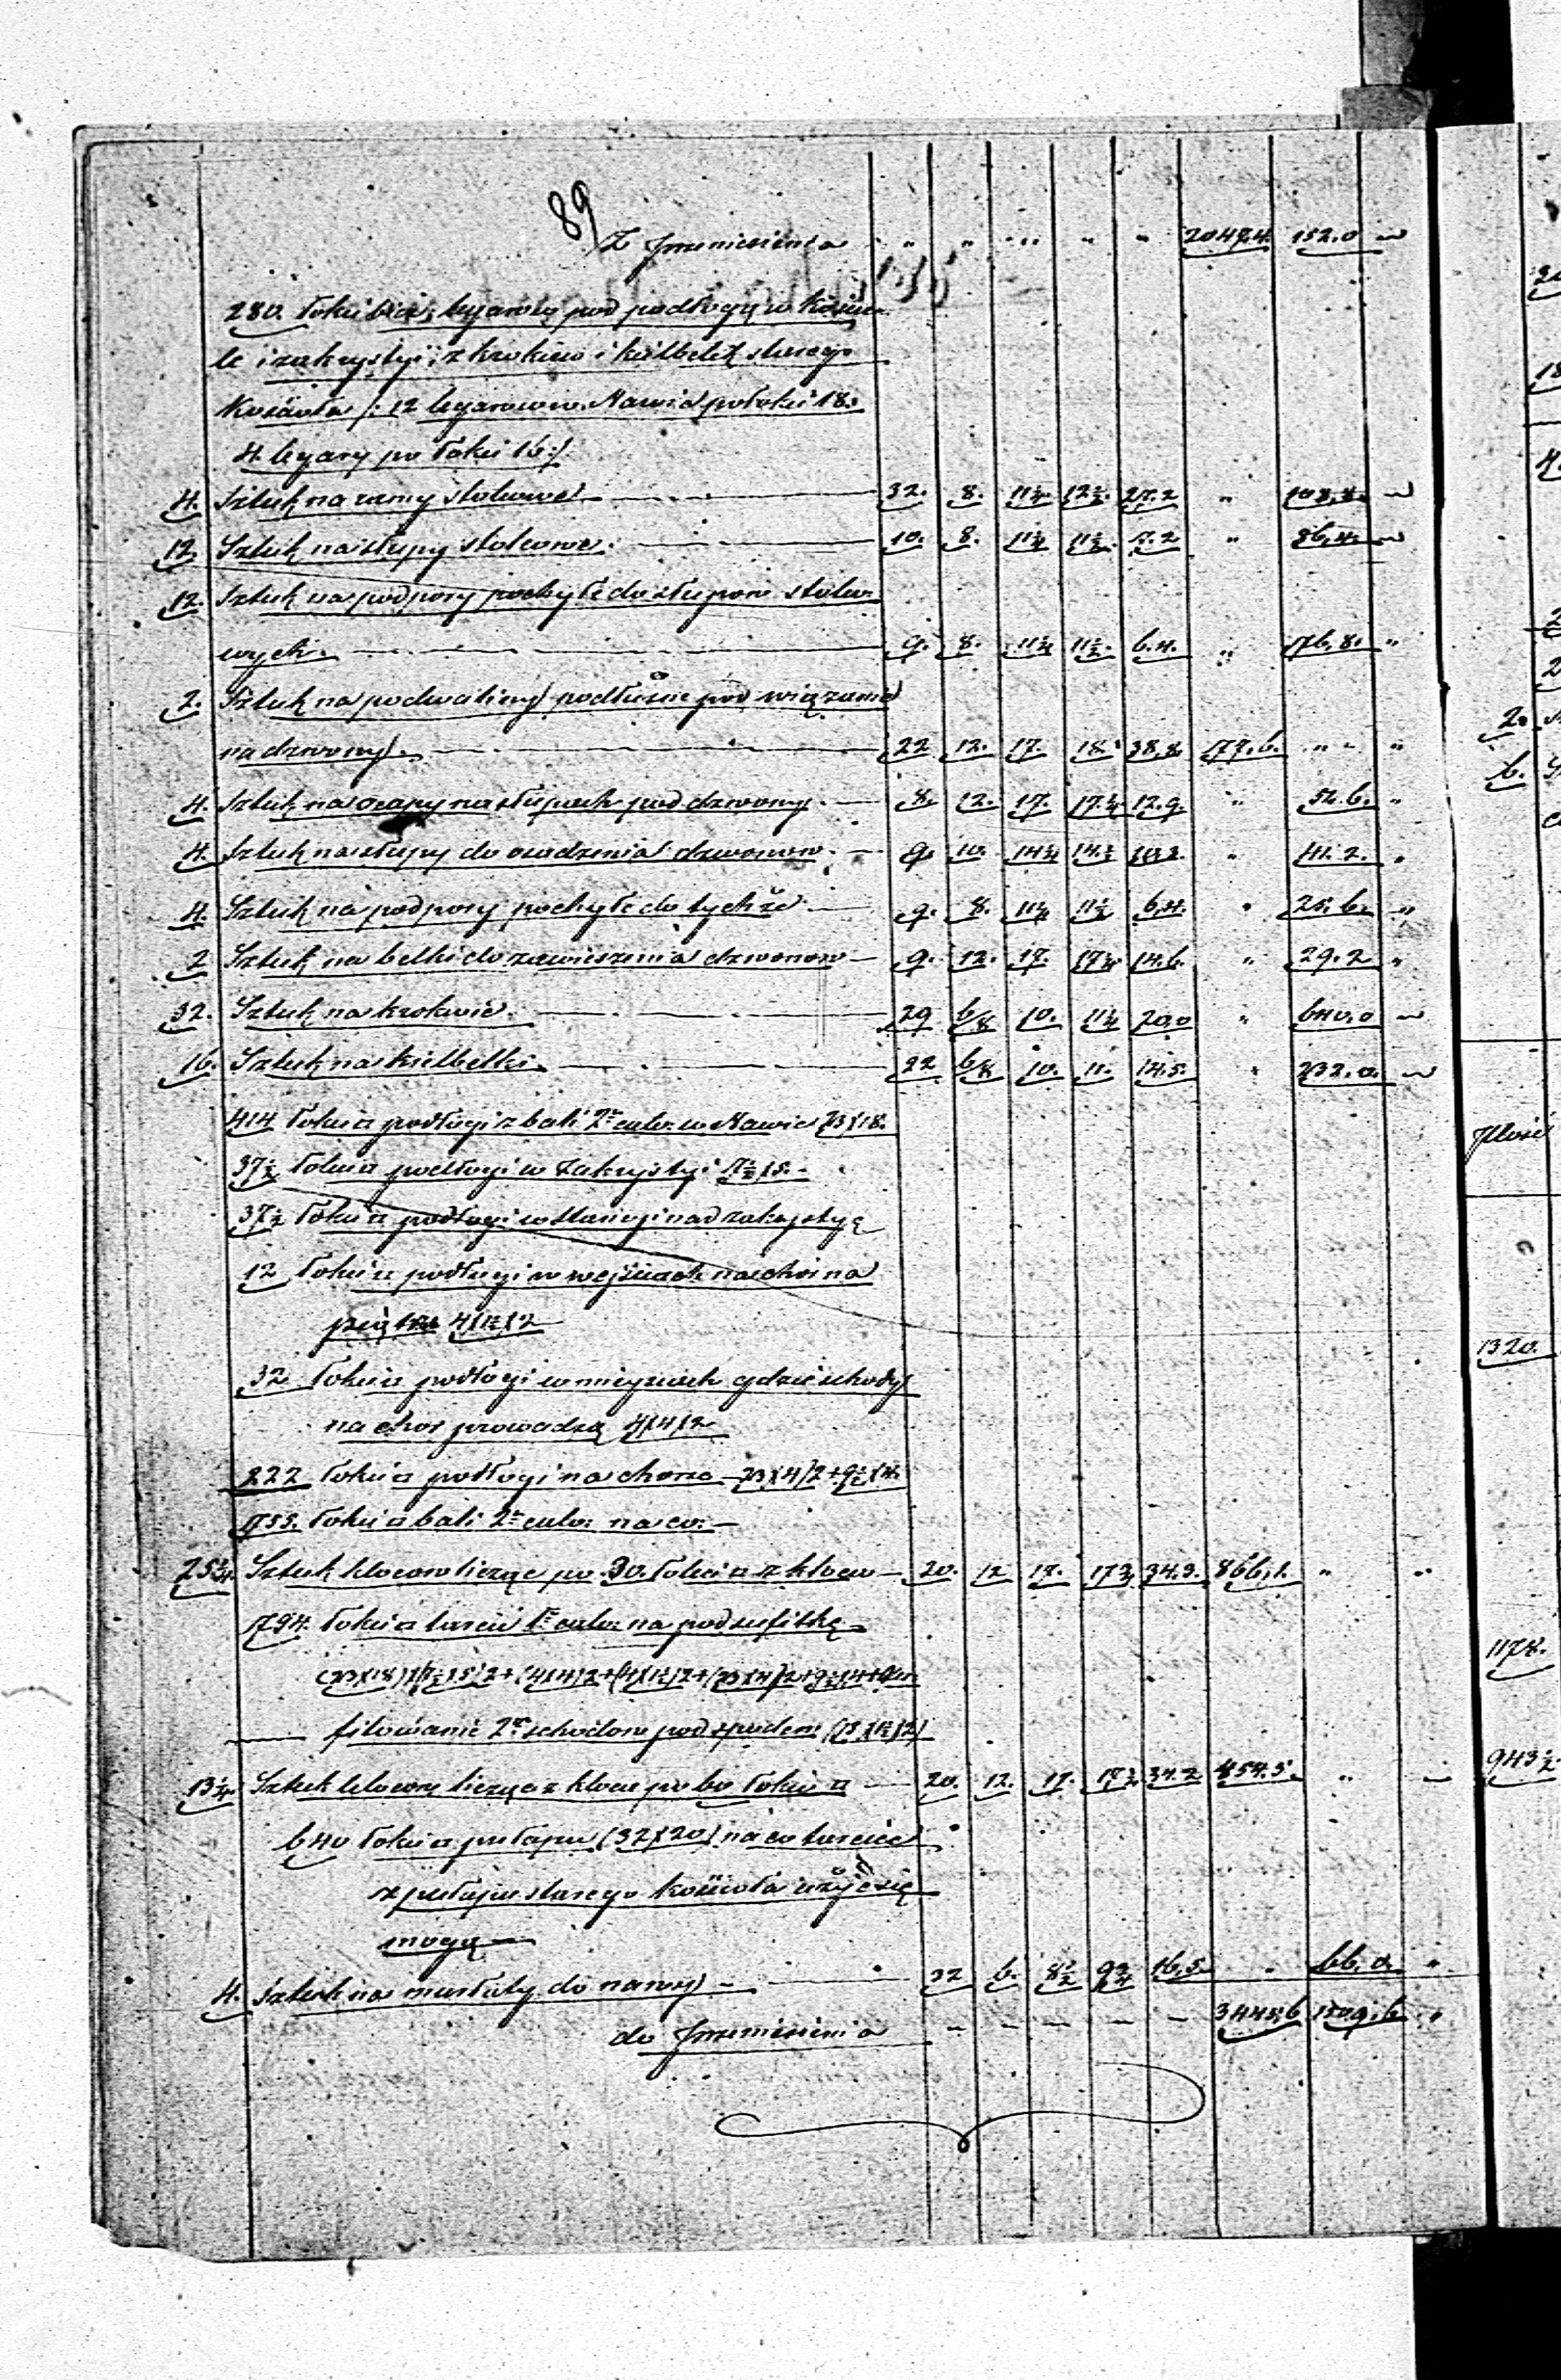 89
Z Przeniesienia " " " " " 2047.4. 152.0 "
280. łokci bież: legarów pod podłogę w koście-
le i zakrystyi, z krokiew i kielbelek starego
Kościoła /: 12 legarów w Nawie po łokci 18.
4 legary po łokci 16:/
4. Sztuk na ramy stolcowe 32. 8. 11¼ 12½. 27.2 " 108.8. "
12. Sztuk na słupy stolcowe. 10. 8. 11¼ 11½. 7.2 " 86.4. "
12. Sztuk na podpory pochyłe do słupów stolco-
wych. 9. 8. 11¼ 11½. 6.4. " 76.8. "
2. Sztuk na podwaliny podłużne pod wiązanie
na dzwony. 22 12. 17. 18. 38.8. 77.6. " "
4. Sztuk na ocapy na słupach pod dzwony. 8. 12. 17. 17¼ 12.9. " 52.6. "
4. Sztuk na słupy do osadzenia dzwonów. 9. 10. 14¼ 14½ 10.3. " 41.2. "
4. Sztuk na podpory pochyłe do tychże 9. 8. 11¼ 11½ 6.4. " 25.6. "
2 Sztuk na belki do zawieszenia dzwonów 9. 12. 17. 17¼ 14.6. " 29.2 "
32. Sztuk na krokwie. 29 6/8 10. 11¼ 20.0 " 640.0 "
16. Sztuk na kielbelki. 22 6/8 10. 11. 14.5. " 232.0. "
414 łokci □ podłogi z bali 2" calow: w Nawie 23×18.
37½ łokci □ podłogi w Zakrystyi 7½×5.
37½ łokci □ podłogi w stancyi nad zakrystyą
12 łokci □ podłogi w wejściach na chór na
piętrze 4×1½×2
32 łokci □ podłogi w miejscach gdzie schody
na chór prowadzą 4×4×2
222 łokci □ podłogi na chorze 23×4)2+9½×4.
755. łokci □ bali 2" calow: na co:
25¼. Sztuk kloców licząc po 30. łokci □ z kloca 20. 12 17. 17¾ 34.3. 866.1. " "
794. łokci □ tarcic 1" calow: na podsufitkę
(23×18)+(7½×5)2+(4×4)2+(4×1½)2+(23×4)2+9½×4+
filowanie 2" schodów pod spodem
13¼. Sztuk kloców licząc z kloca po 60 łokci □ 20. 12. 17. 17¾ 34.2 454.5. " "
640 łokci □ pułapu (32×20) na co tarcice
z pułapu starego kościoła użyć się
mogą
4. Sztuk na murłaty do nawy 32 6. 8½ 9¾ 16.5. " 66.0. "
do Przeniesienia 3445.6 1509.6 "
2.
6.
Ilość
1320.
1178.
943½